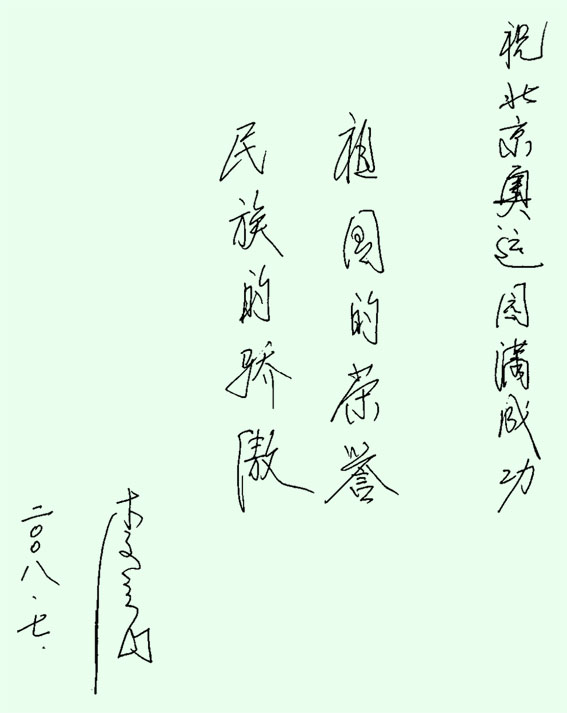 祝北京奥运圆满成功
祖国的荣誉
民族的骄傲
二〇〇八.七.